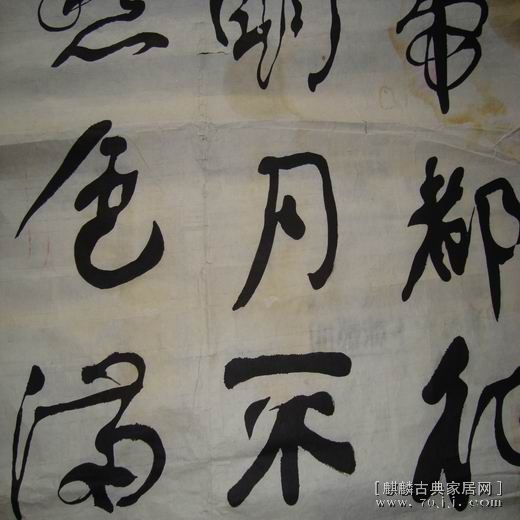 帝都
明月不
色满
[麒麟古典家居网]
www.70jj.com